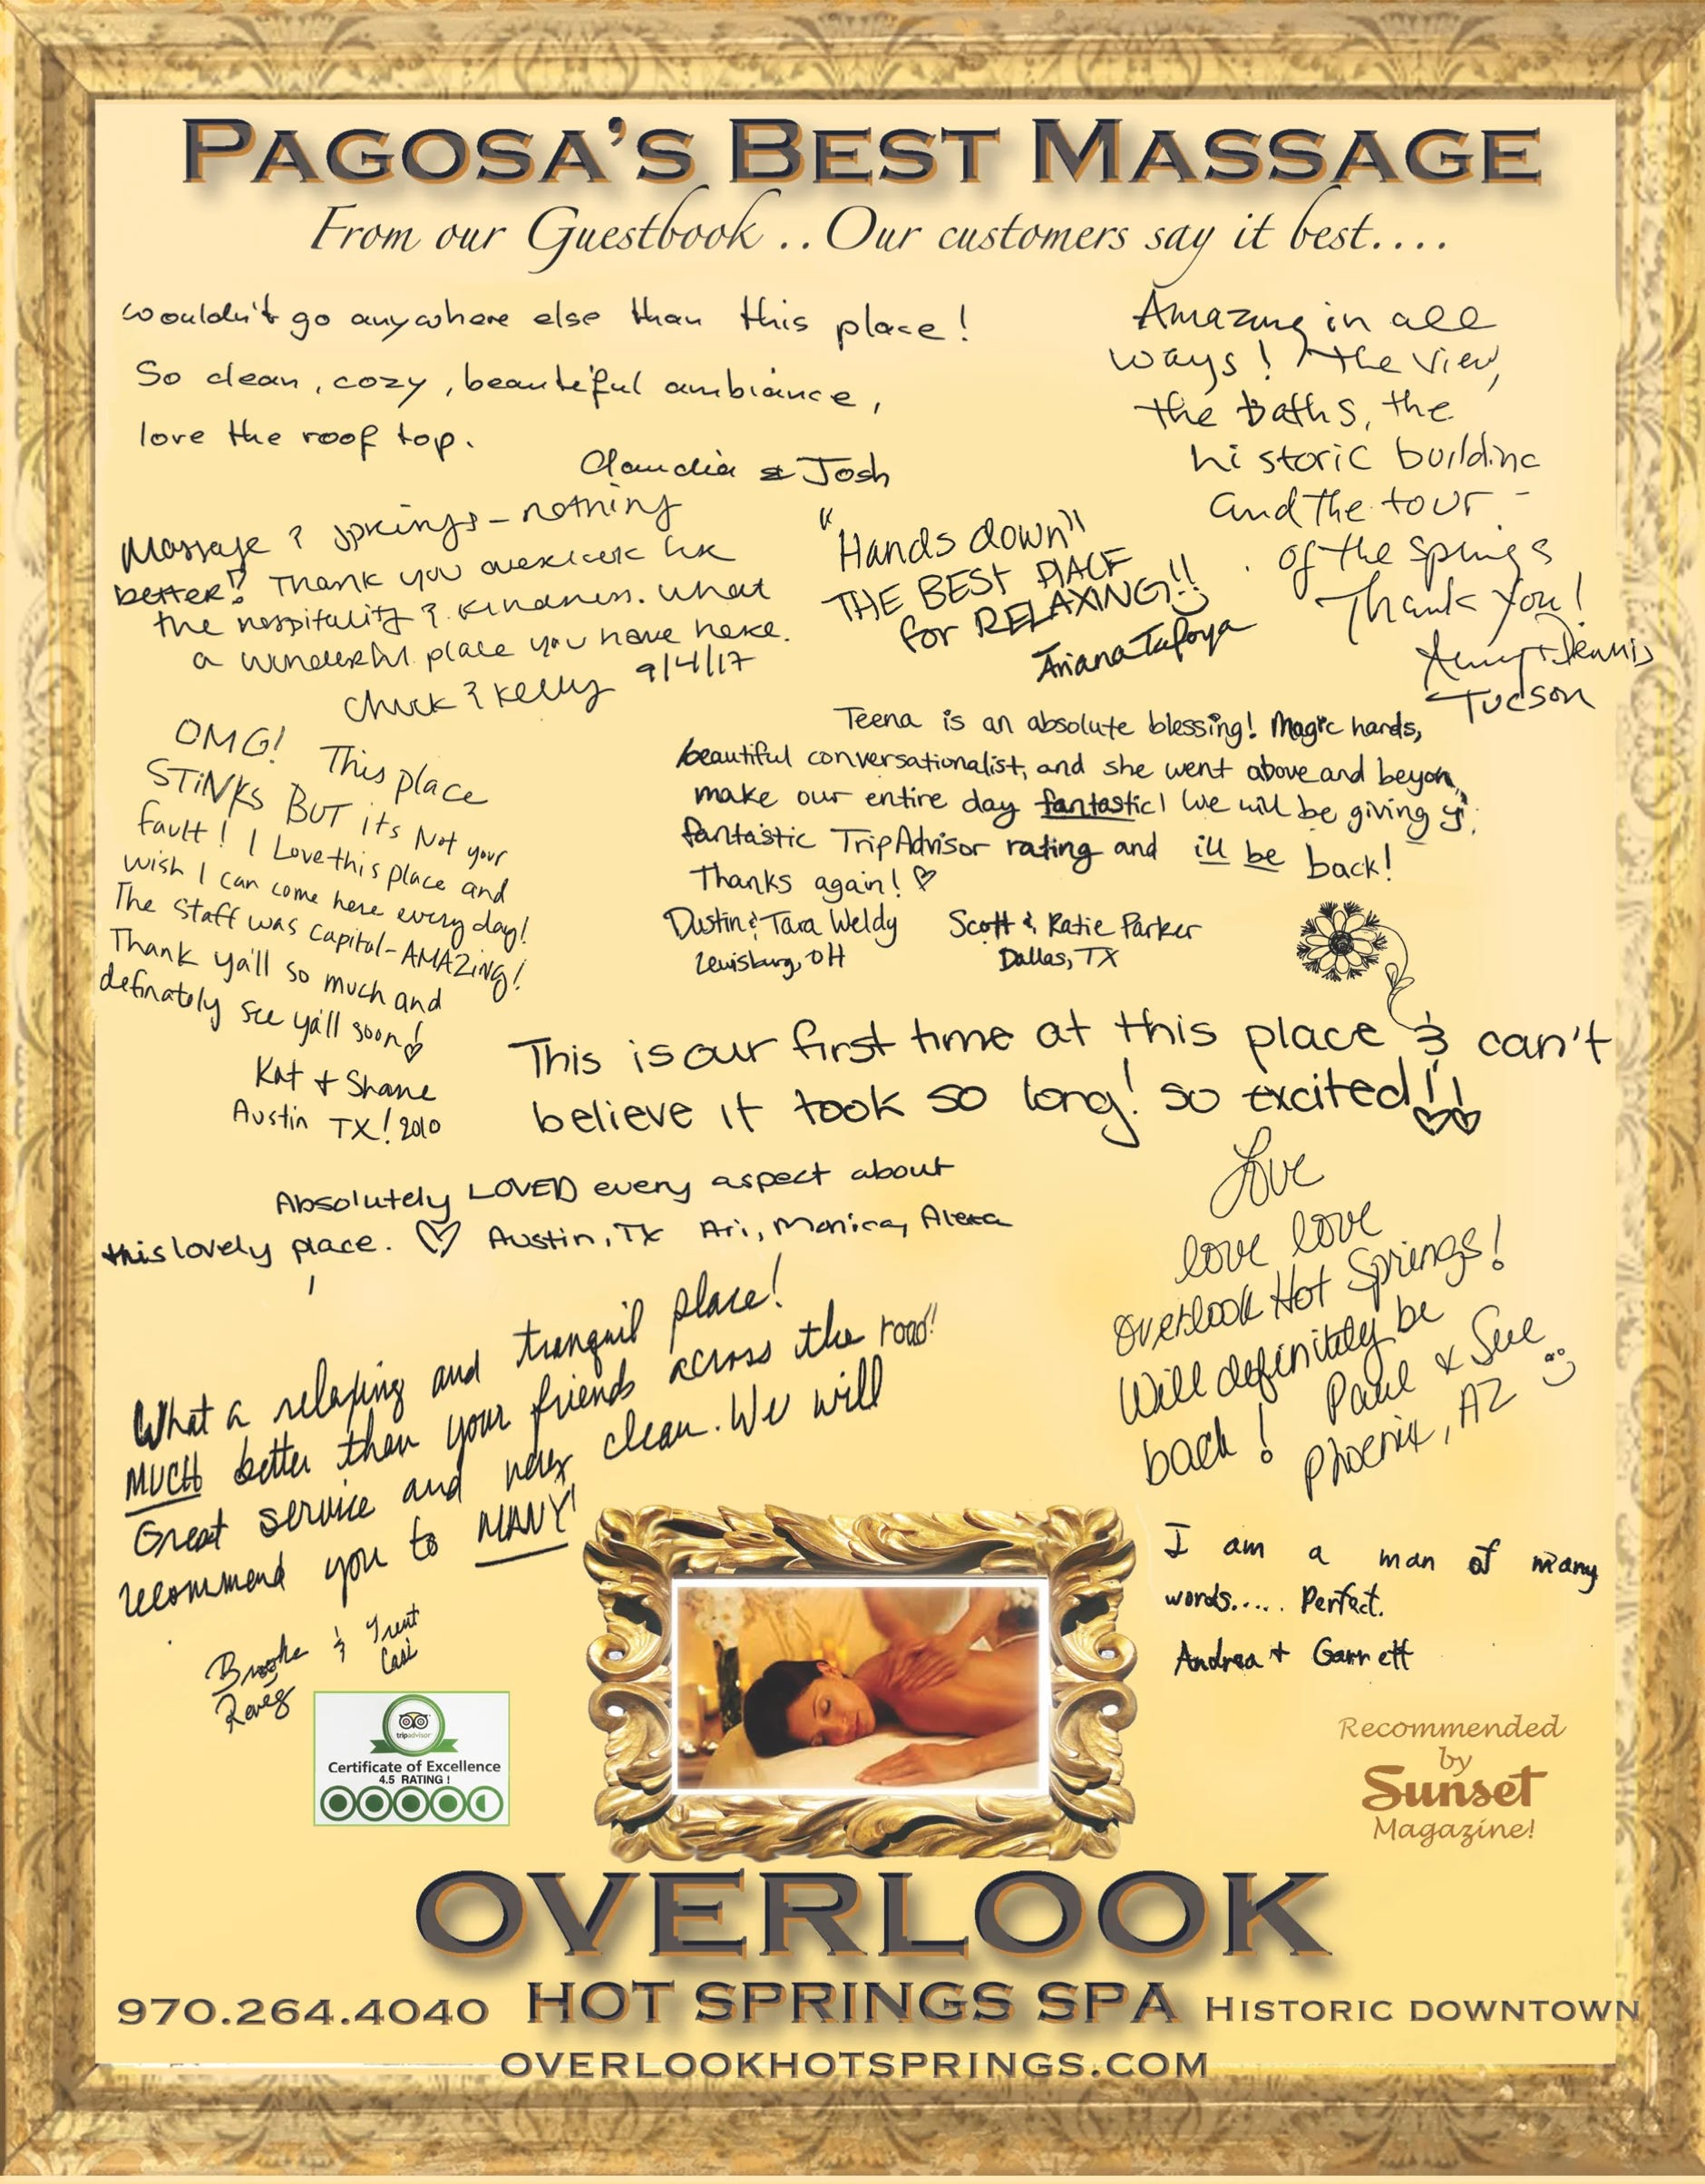 PAGOSA'S BEST MASSAGE
From our Guestbook .. Our customers say it best....
wouldn't go anywhere else than this place!
So clean, cozy, beauteful ambiance,
love the roof top.
Claudia & Josh
Amazing in all
ways! the view,
the baths, the
historic building
and the tour -
of the springs
Thank you!
Amy + Dennis
Tucson
Massage & springs - nothing
better! Thank you overlook for
the hospitality & kindness. What
a wonderful place you have here.
Chuck & Kelly 9/4/17
"Hands down"
THE BEST PLACE
for RELAXING!!
Ariana Tafoya
Teena is an absolute blessing! Magic hands,
beautiful conversationalist, and she went above and beyon
make our entire day fantastic! We will be giving y
fantastic TripAdvisor rating and ill be back!
Thanks again! ♡
Dustin & Tara Weldy
Lewisburg, OH
Scott & Katie Parker
Dallas, TX
OMG! This place
STINKS BUT its Not your
fault! I Love this place and
wish I can come here every day!
The staff was capital-AMAZING!
Thank ya'll so much and
definately see ya'll soon! ♡
Kat + Shane
Austin TX! 2010
This is our first time at this place & can't
believe it took so long! so excited!! ♡♡
Absolutely LOVED every aspect about
this lovely place. ♡ Austin, TX Ari, Monica, Alexa
Love
love love
Overlook Hot Springs!
Will definitely be
back! Paul & Sue
Phoenix, AZ
What a relaxing and tranquil place!
MUCH better than your friends across the road!
Great service and very clean. We will
recommend you to MANY!
Brooke & Trent
I am a man of many
words..... Perfect.
Andrea + Garrett
tripadvisor
Certificate of Excellence
4.5 RATING!
Recommended
by
Sunset
Magazine!
OVERLOOK
970.264.4040 HOT SPRINGS SPA HISTORIC DOWNTOWN
OVERLOOKHOTSPRINGS.COM